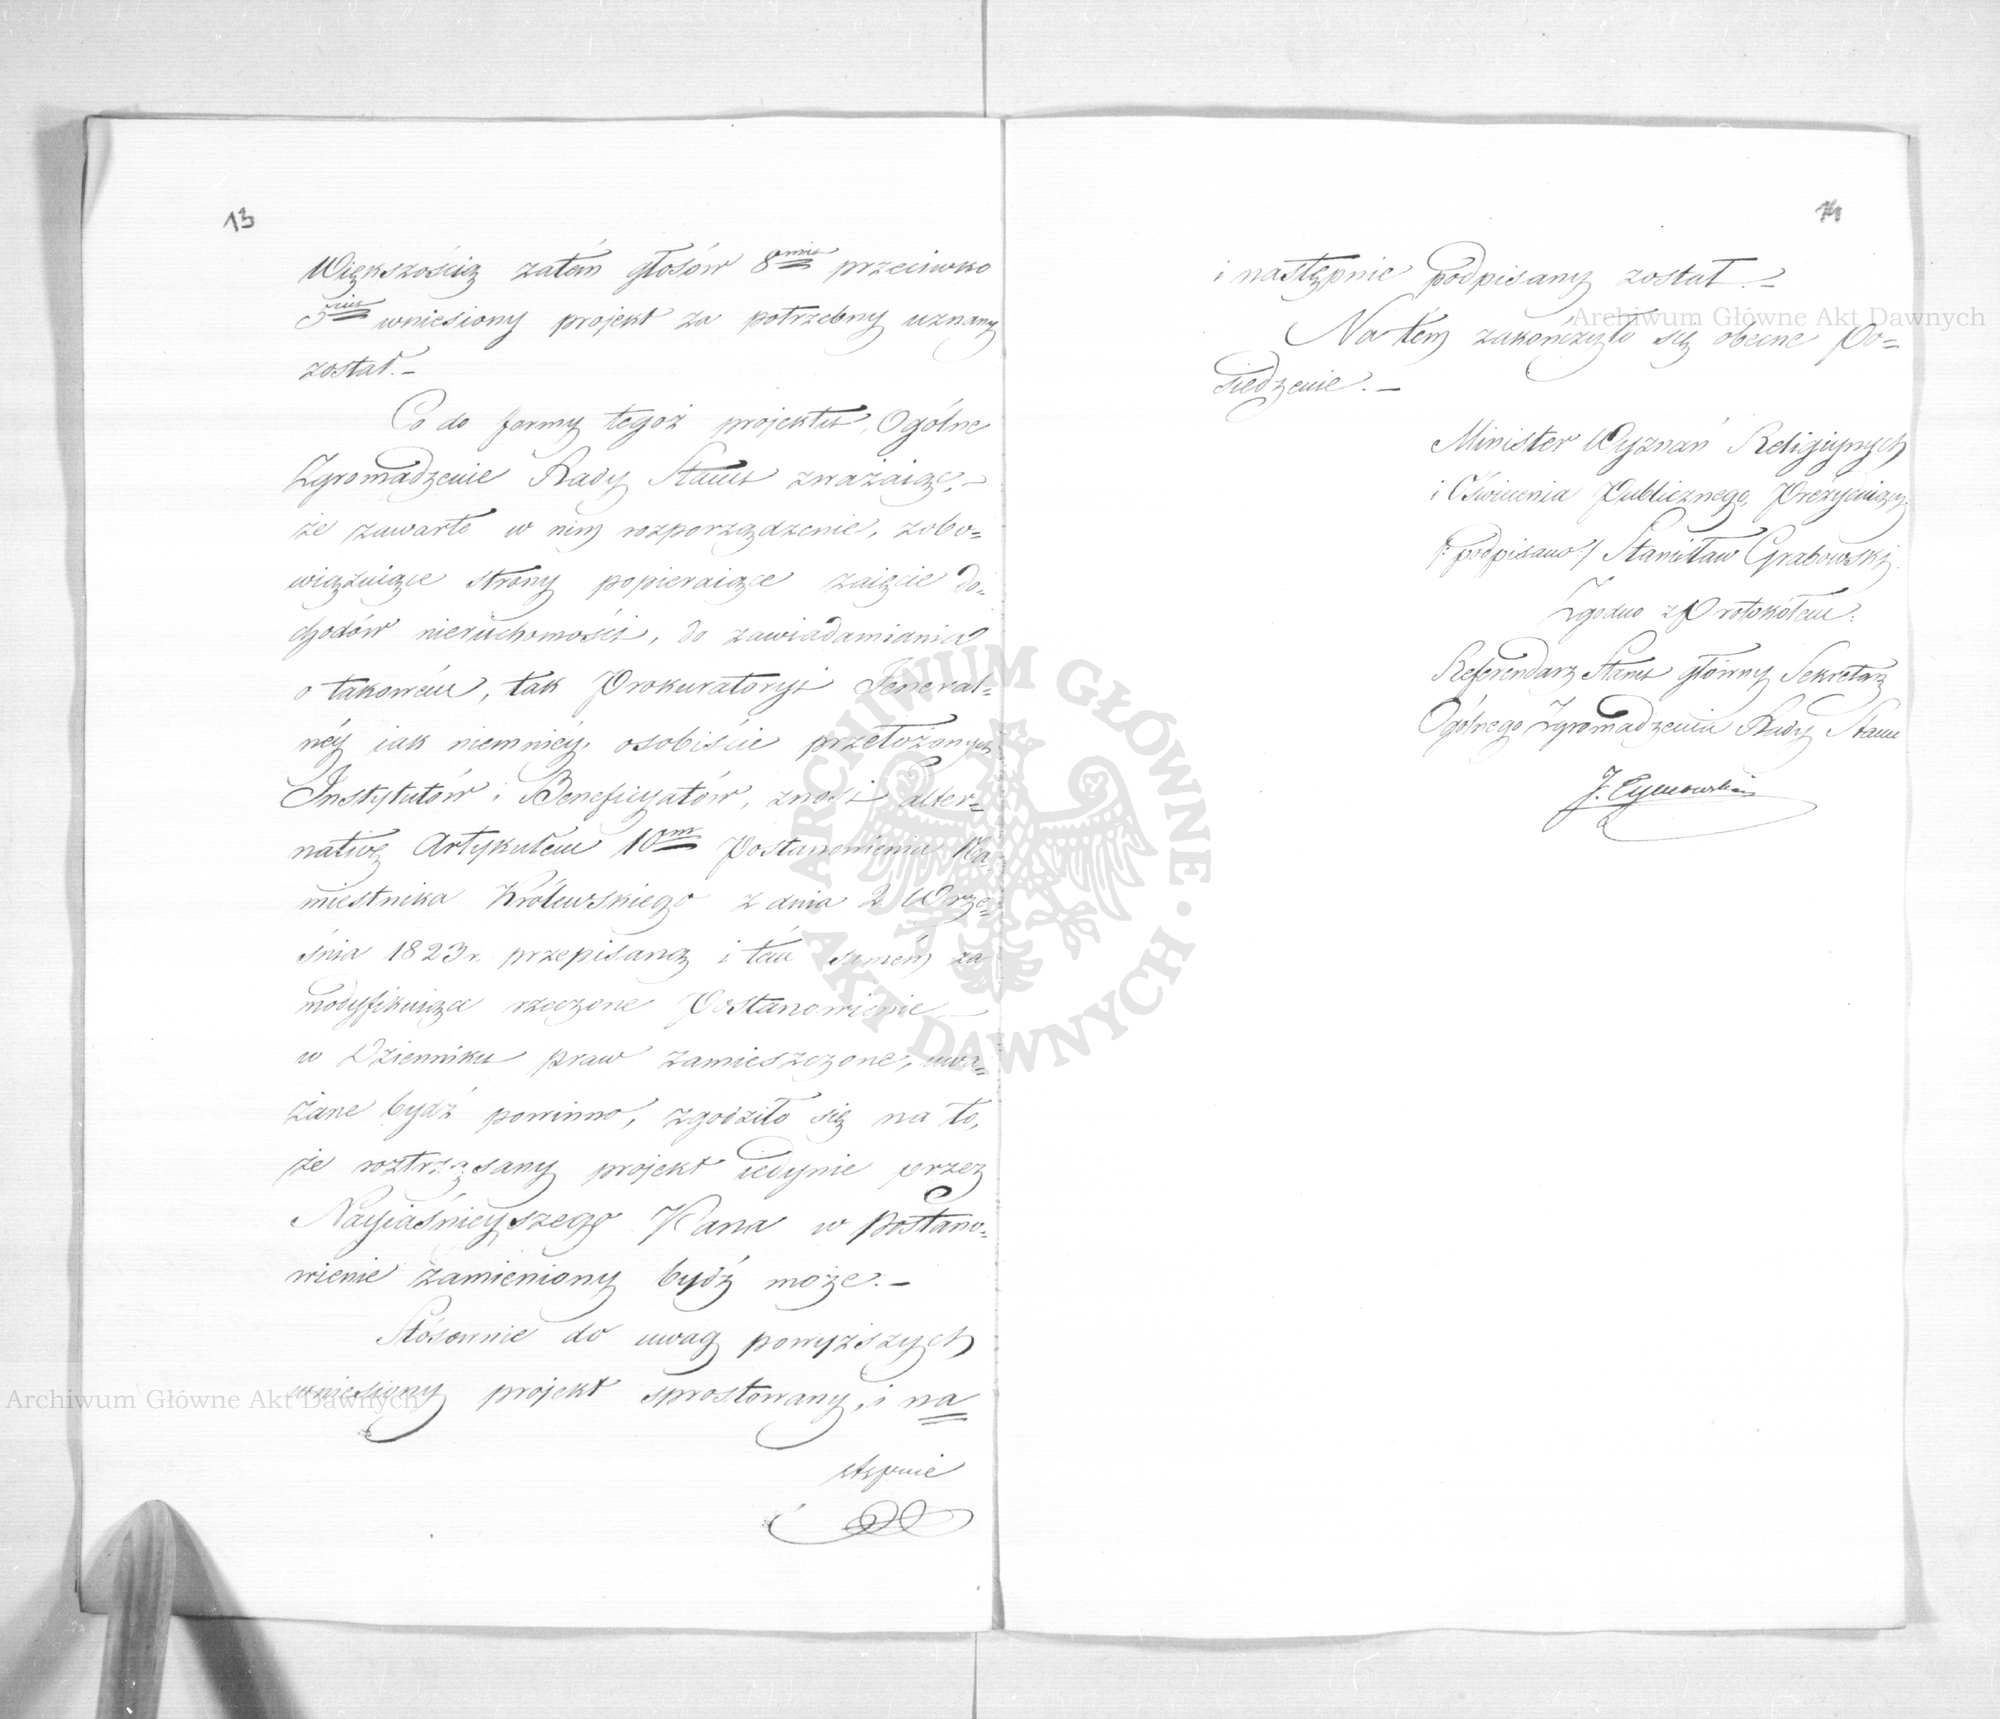 13
Większością zatém głosów 8omiu przeciwko
5ciu wniesiony projekt za potrzebny uznany
został.–
Co do formy tegoż projektu, Ogólne
Zgromadzenie Rady Stanu zważaiąc,–
że zawarte w nim rozporządzenie, zobo=
wiązuiące strony popieraiące zaięcie do=
chodów nieruchomości, do zawiadamiania
o takowém, tak Prokuratoryi Jeneral=
néy iak niemniéy osobiście przełożonych
Instytutów i Beneficyatów, znosi alter=
natiwę Artykułem 10m Postanowienia Na=
miestnika Królewskiego z dnia 2 Wrze=
śnia 1823 r. przepisaną i tém samém za
modyfikuiące rzeczone Postanowienie –
w Dzienniku praw zamieszczone, uwa=
żane bydź powinno, zgodziło się na to,
że roztrząsany projekt iedynie przez
Nayiaśnieyszego Pana w Postano=
wienie zamieniony bydź może.–
Stósownie do uwag powyższych
wniesiony projekt sprostowany, i na
stępnie
14
i następnie podpisany został.–
Na tém zakończyło się obecne Po=
siedzenie.–
Minister Wyznań Religiynych
i Oświecenia Publicznego, Prezyduiący
/: podpisano :/ Stanisław Grabowski.
Zgodno z Protokółem:
Referendarz Stanu główny Sekretarz
Ogólnego Zgromadzenia Rady Stanu
J. Tymowski
Archiwum Główne Akt Dawnych
Archiwum Główne Akt Dawnych
ARCHIWUM GŁÓWNE · AKT DAWNYCH ·